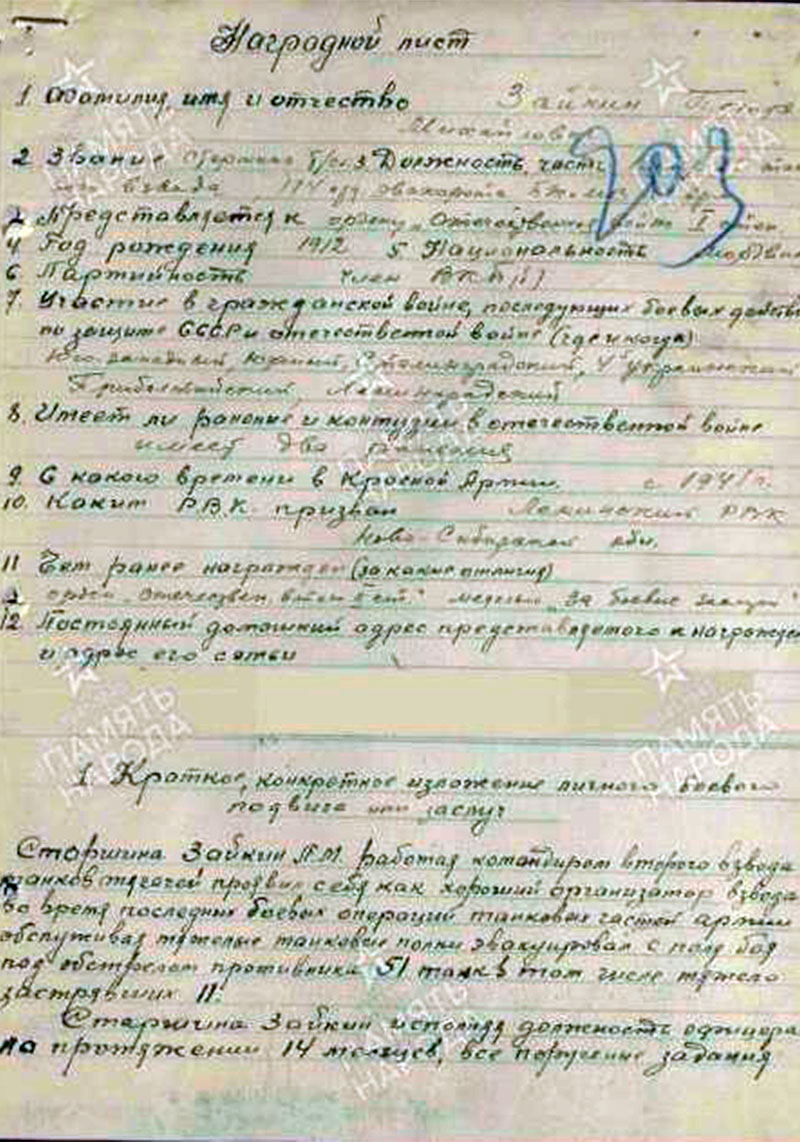 Наградной лист
1 Фамилия, имя и отчество Зайкин
Михайлович
2 Звание старшина т/сл 3 Должность, часть
взвода 174 эвакорота
3 Представляется к ордену "Отечественной войны I степ.
4 Год рождения 1912 5 Национальность мордвин
6 Партийность член ВКП(б)
7. Участие в гражданской войне, последующих боевых действ
по защите СССР и отечественной войне (где и когда)
Юго-западный, Южный, Сталинградский, 4й украинский
Прибалтийский, Ленинградский
8. Имеет ли ранение и контузии в отечественной войне
имеет два ранения
9. С какого времени в Красной Армии. с 1941 г.
10. Каким Р.В.К. призван Ленинский РВК
Ново-Сибирской обл.
11 Чем ранее награжден (за какие отличия)
орден "Отечествен. войны II ст." медалью "За боевые заслуги"
12. Постоянный домашний адрес представляемого к награжден
и адрес его семьи
1 Краткое, конкретное изложение личного боевого
подвига или заслуг
Старшина Зайкин П.М. работая командиром второго взвода
танков тягачей проявил себя как хороший организатор взвода
во время последних боевых операций танковых частей армии
обслуживая тяжелые танковые полки эвакуировал с поля боя
под обстрелом противника 51 танк в том числе тяжело
застрявших 11.
Старшина Зайкин исполняя должность офицера
на протяжении 14 месяцев, все порученные задания
203
ПАМЯТЬ НАРОДА
ПАМЯТЬ НАРОДА
ПАМЯТЬ НАРОДА
ПАМЯТЬ НАРОДА
ПАМЯТЬ НАРОДА
ПАМЯТЬ НАРОДА